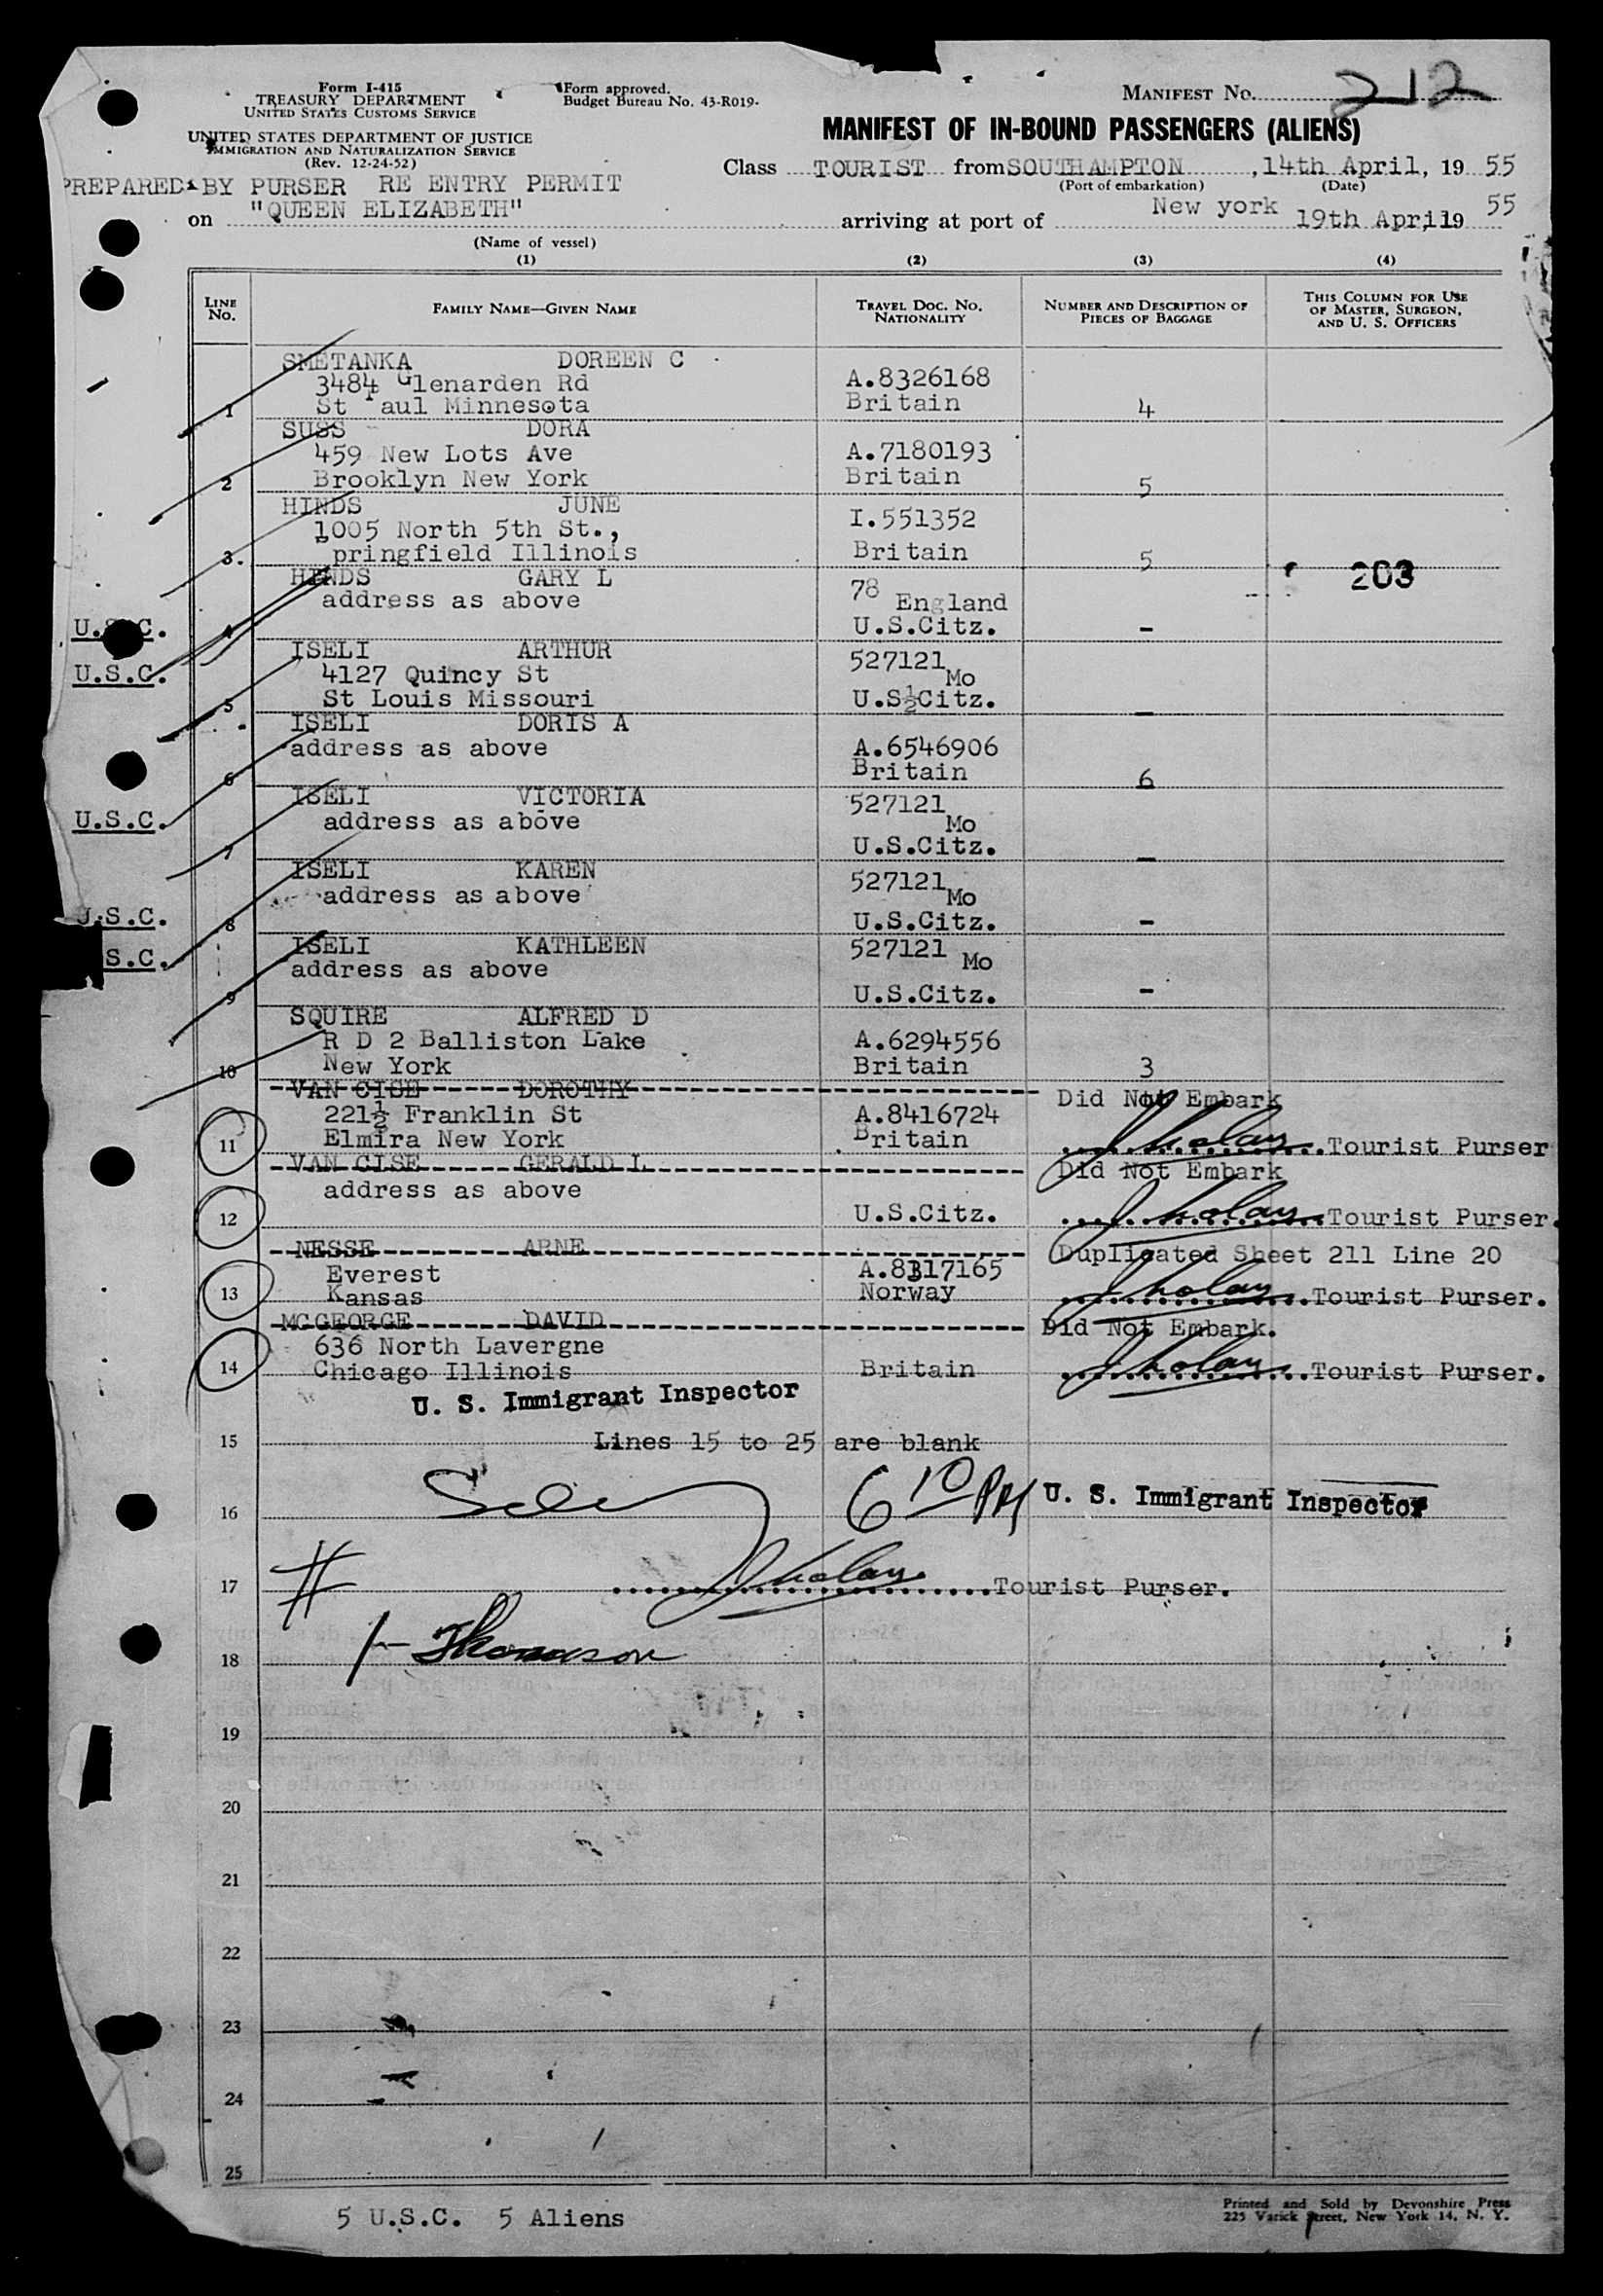 Form I-415
TREASURY DEPARTMENT
UNITED STATES CUSTOMS SERVICE
UNITED STATES DEPARTMENT OF JUSTICE
IMMIGRATION AND NATURALIZATION SERVICE
(Rev. 12-24-52)
Form approved.
Budget Bureau No. 43-R019.
MANIFEST NO. 212
MANIFEST OF IN-BOUND PASSENGERS (ALIENS)
Class TOURIST from SOUTHAMPTON, 14th April, 19 55
(Port of embarkation) (Date)
PREPARED BY PURSER RE ENTRY PERMIT
on "QUEEN ELIZABETH" arriving at port of New york 19th April 19 55
(Name of vessel)
(1) (2) (3) (4)
LINE NO. FAMILY NAME—GIVEN NAME TRAVEL DOC. NO. NATIONALITY NUMBER AND DESCRIPTION OF PIECES OF BAGGAGE THIS COLUMN FOR USE OF MASTER, SURGEON, AND U. S. OFFICERS
SMETANKA DOREEN C
3484 Glenarden Rd A.8326168
1 St Paul Minnesota Britain 4
SUSS DORA
459 New Lots Ave A.7180193
2 Brooklyn New York Britain 5
HINDS JUNE
1005 North 5th St., I.551352
3. pringfield Illinois Britain 5
HINDS GARY L 203
address as above 78 England
U.S.C. 4 U.S.Citz. -
ISELI ARTHUR 527121 Mo
U.S.C. 4127 Quincy St
5 St Louis Missouri U.S½Citz. -
ISELI DORIS A
address as above A.6546906
6 Britain 6
ISELI VICTORIA 527121 Mo
U.S.C. address as above
7 U.S.Citz. -
ISELI KAREN 527121 Mo
address as above
U.S.C. 8 U.S.Citz. -
S.C. ISELI KATHLEEN 527121 Mo
address as above
9 U.S.Citz. -
SQUIRE ALFRED D
R D 2 Balliston Lake A.6294556
10 New York Britain 3
VAN CISE DOROTHY Did Not Embark
221½ Franklin St A.8416724
11 Elmira New York Britain Tourist Purser
VAN CISE GERALD L Did Not Embark
address as above
12 U.S.Citz. Tourist Purser.
NESSE ARNE Duplicated Sheet 211 Line 20
Everest A.8317165
13 Kansas Norway Tourist Purser.
MCGEORGE DAVID Did Not Embark.
636 North Lavergne
14 Chicago Illinois Britain Tourist Purser.
U. S. Immigrant Inspector
15 Lines 15 to 25 are blank
16 6 10 PM U. S. Immigrant Inspector
17 # Tourist Purser.
Thomason
18
19
20
21
22
23
24
25
5 U.S.C. 5 Aliens
Printed and Sold by Devonshire Press
225 Varick Street, New York 14, N. Y.